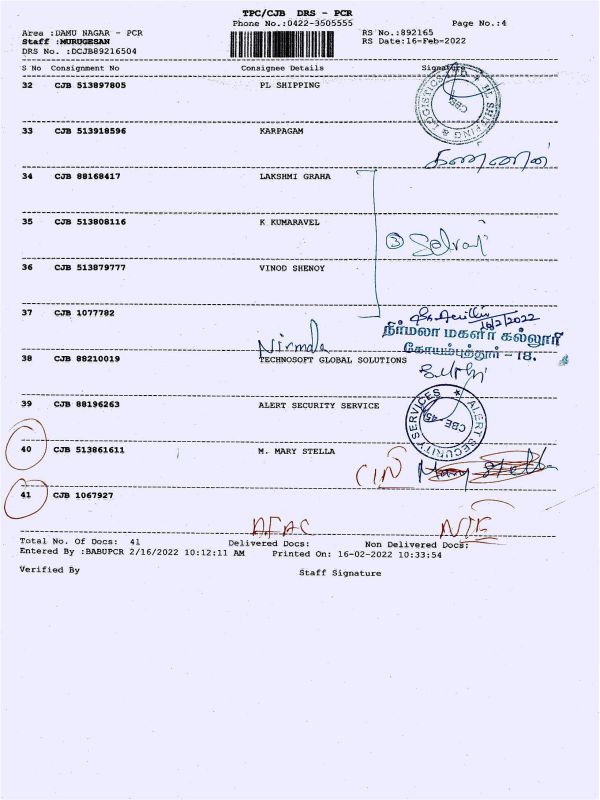 TPC/CJB DRS - PCR
Phone No.:0422-3505555 Page No.:4
Area :DAMU NAGAR - PCR RS No.:892165
Staff :MURUGESAN RS Date:16-Feb-2022
DRS No. :DCJB89216504
S No Consignment No Consignee Details Signature
32 CJB 513897805 PL SHIPPING
PL SHIPPING & LOGISTICS CBE
33 CJB 513918596 KARPAGAM
34 CJB 88168417 LAKSHMI GRAHA
35 CJB 513808116 K KUMARAVEL
③ Selvaj
36 CJB 513879777 VINOD SHENOY
37 CJB 1077782
16/2/2022
Nirmala நிர்மலா மகளிர் கல்லூரி
கோயம்புத்தூர் - 18.
38 CJB 88210019 TECHNOSOFT GLOBAL SOLUTIONS
39 CJB 88196263 ALERT SECURITY SERVICE
ALERT SECURITY SERVICES CBE-45
40 CJB 513861611 M. MARY STELLA
Mary Stella
41 CJB 1067927
Total No. Of Docs: 41 Delivered Docs: Non Delivered Docs:
Entered By :BABUPCR 2/16/2022 10:12:11 AM Printed On: 16-02-2022 10:33:54
Verified By Staff Signature